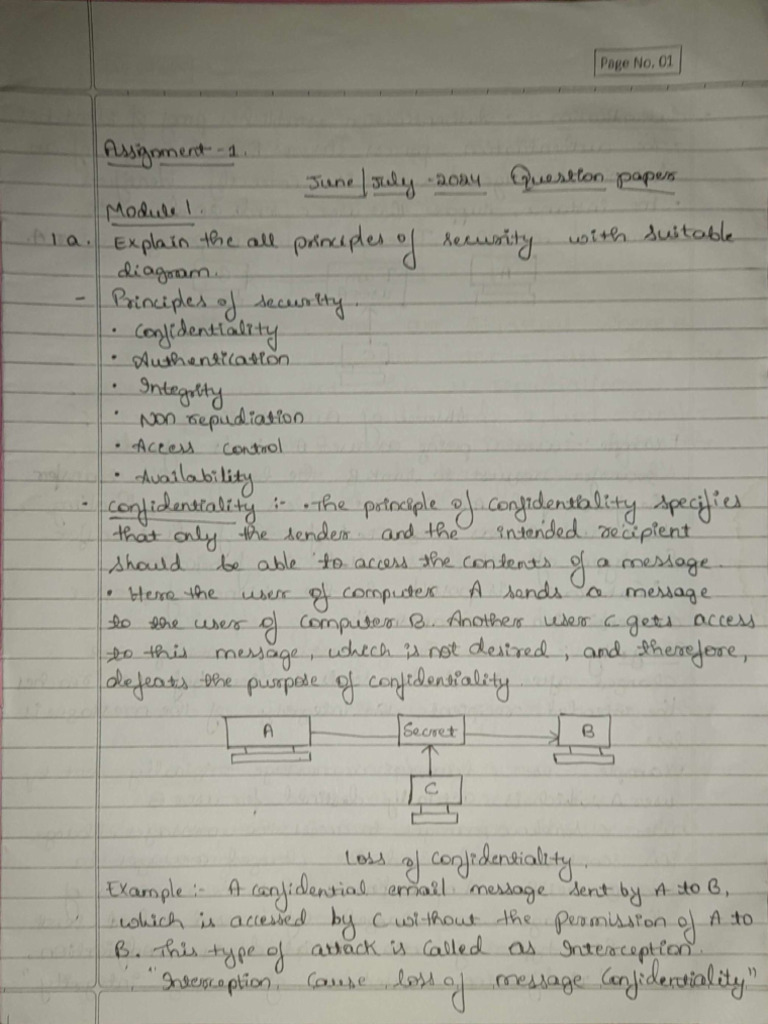 Page No. 01
Assignment-1.
June/July-2024 Question paper
Module 1.
1a. Explain the all principles of security with suitable
diagram.
- Principles of security.
• Confidentiality
• Authentication
• Integrity
• Non repudiation
• Access control
• Availability
- Confidentiality :- • The principle of confidentiality specifies
that only the sender and the intended recipient
should be able to access the contents of a message.
• Here the user of computer A sends a message
to the user of computer B. Another user C gets access
to this message, which is not desired, and therefore,
defeats the purpose of confidentiality.
A Secret B
C
Loss of confidentiality.
Example:- A confidential email message sent by A to B,
which is accessed by C without the permission of A to
B. This type of attack is called as Interception.
"Interception, Cause loss of message Confidentiality"